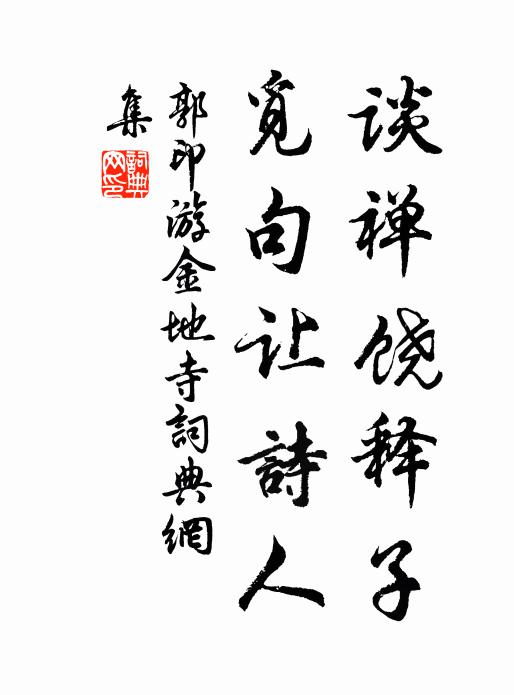 谈禅饶释子
觅句让詩人
郭印游金地寺詞典網
集
詞典
网印